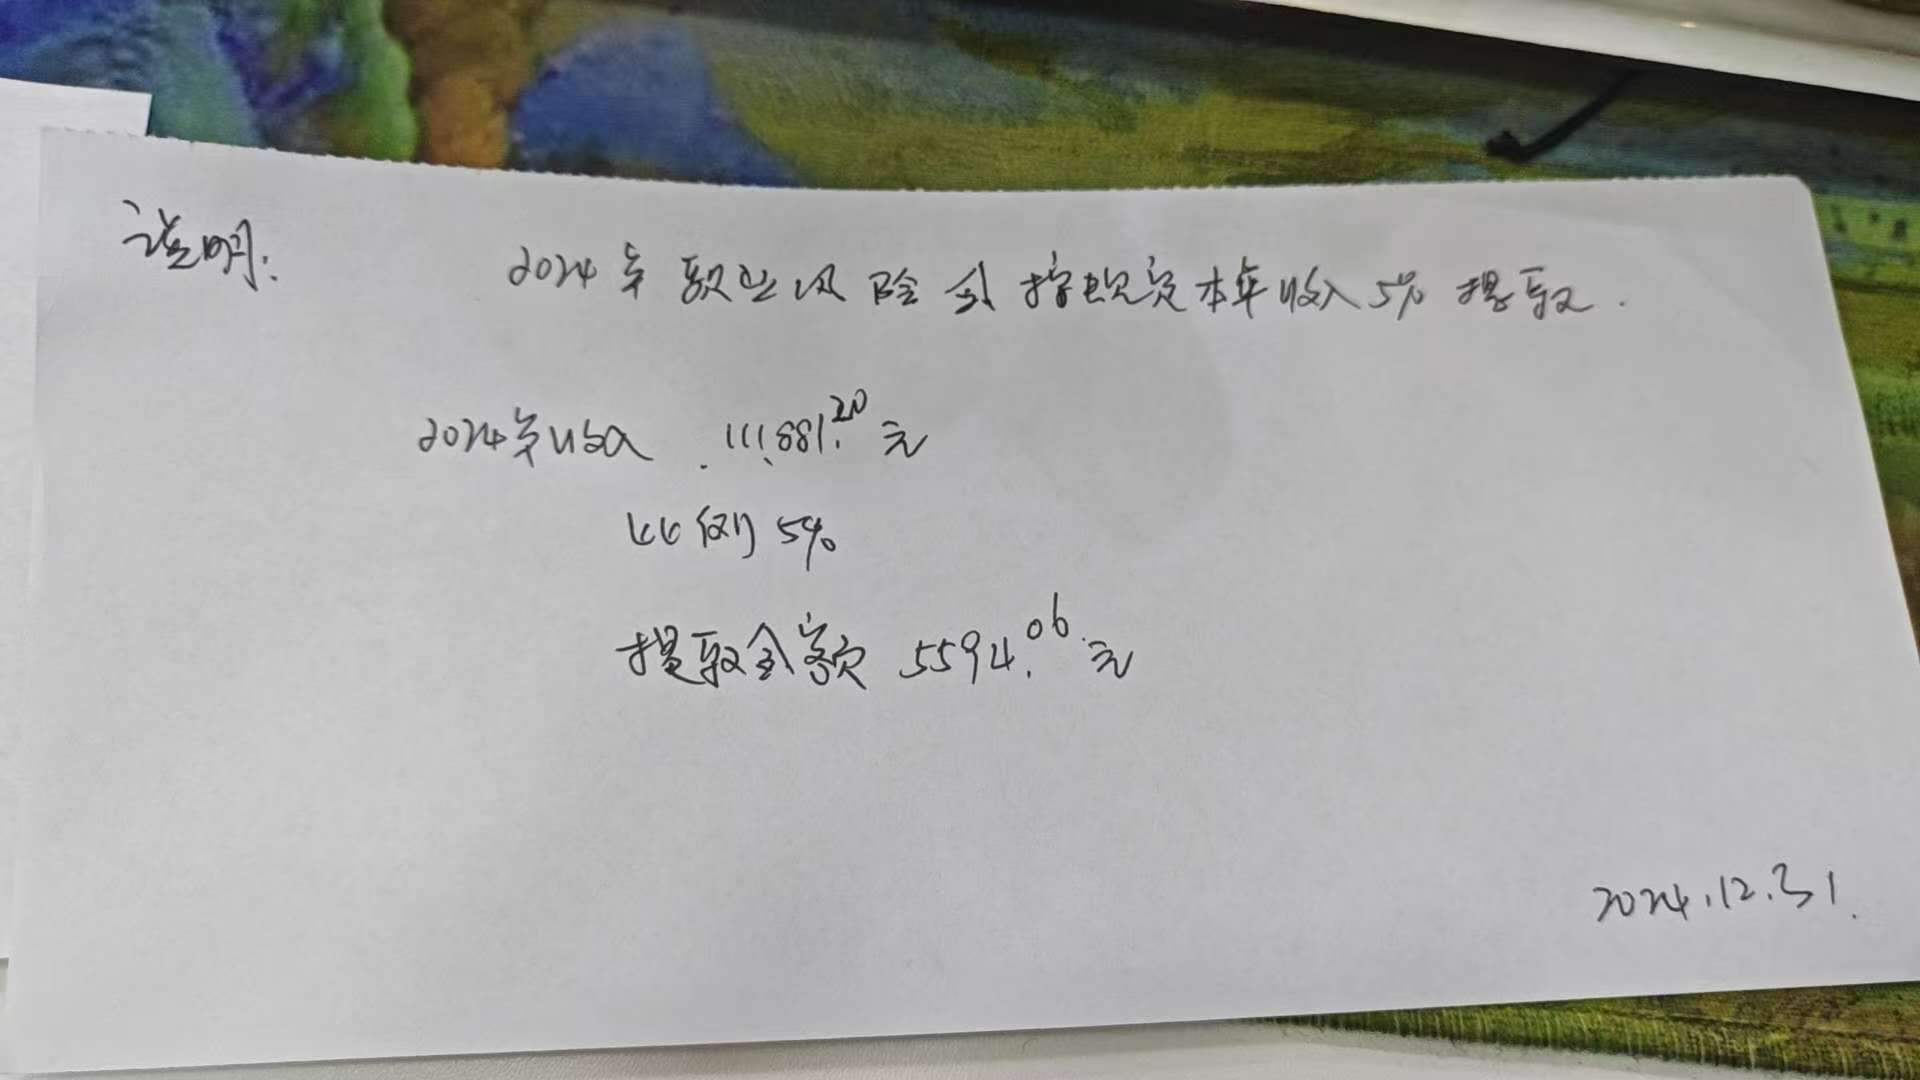 说明:
2024年职业风险金按规定本年收入5%提取.
2024年收入 111,881.20元
比例5%
提取金额 5594.06元
2024.12.31.